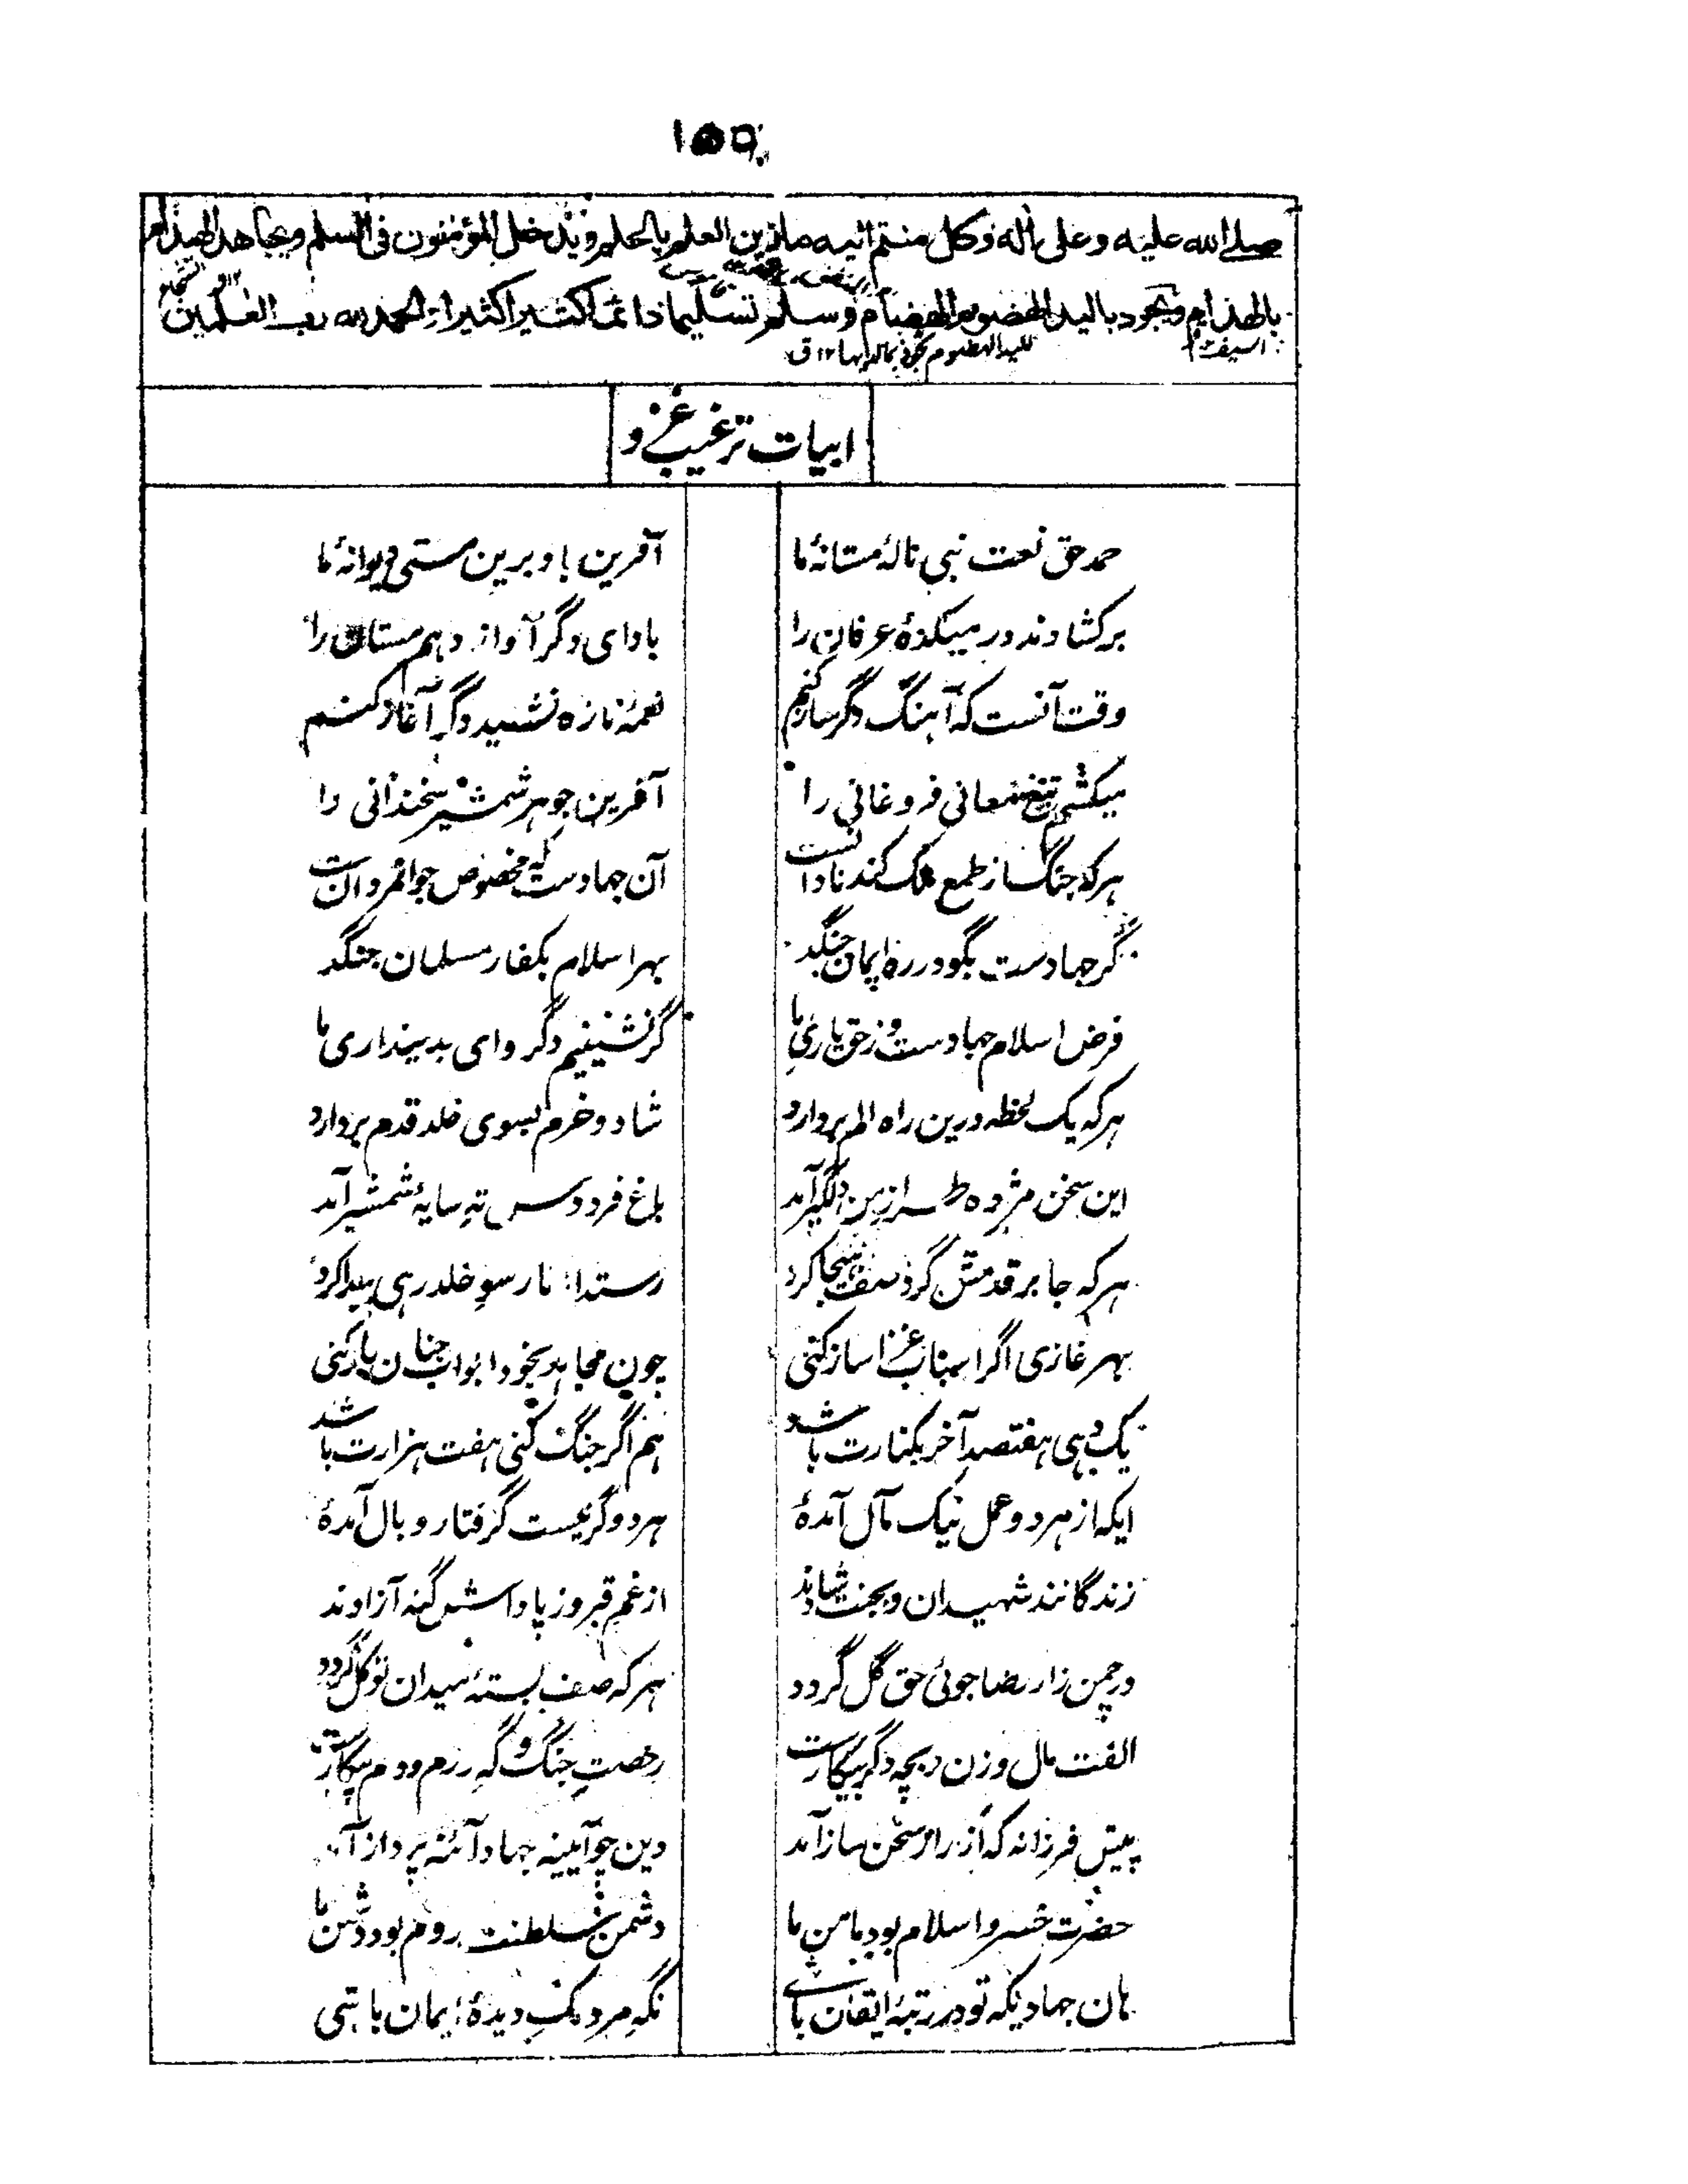 ۱۵۵
صلے الله عليه وعلى أله وكل منتم اليه مازين العلم بالحلم ويدخل المؤمنون فى السلم ويجاهد الهذام
بالهذام ويجود باليد الهضوم الهضام وسلم تسليما دائما كثيرا كثيرا والحمد لله رب العلمين
ابیات ترغیب غزو
حمد حق نعت نبی نالهٔ مستانهٔ ما آفرین باد برین مستی دیوانهٔ ما
برکشادند در میکدهٔ عرفان را باد ای دگر آواز دهم مستان را
وقت آنست که آهنگ دگر ساز کنم نغمهٔ تازه نشید دگر آغاز کنم
میکشم تیغ معانی فروغانی را آفرین جوهر شمشیر سخندانی را
هر که جنگ از طمع ملک کند نادانست آن جهادست که مخصوص جوانمردانست
گر جهادست بگو در ره ایمان جنگد بهر اسلام بکفار مسلمان جنگد
فرض اسلام جهادست و ز حق یاری ما گر نشینیم دگر وای بدینداری ما
هر که یک لحظه درین راه الم بردارد شاد و خرم بسوی خلد قدم بردارد
این سخن مژده طراز من دلگیر آمد باغ فردوس ته سایهٔ شمشیر آمد
هر که جا بر قدمش گرد صف هیجا کرد رست از نار سوی خلد رهی پیدا کرد
بهر غازی اگر اسباب غزا ساز کنی چون مجاهد بخود ابواب جنان باز کنی
یک دهی هفتصد آخر بکنارت باشد هم اگر جنگ کنی هفت هزارت باشد
ایکه از هر دو عمل نیک مآل آمدهٔ هر دو گر نیست گرفتار وبال آمدهٔ
زندگانند شهیدان و بجنت شادند از غم قبر و ز پاداش گنه آزادند
در چمن زار رضا جوئی حق گل گردد هر که صف بستهٔ میدان توکل گردد
الفت مال و زن و بچه دگر بیکارست رخصت جنگ و گه رزم و دم پیکارست
پیش فرزانه که از راز سخن ساز آمد دین چو آیینه جهاد آئنه پرداز آمد
حضرت خسرو اسلام بود مامن ما دشمن سلطنت روم بود دشمن ما
هان جهادیکه تو در رتبهٔ ایقان باشی نگه مردمک دیدهٔ ایمان باشی